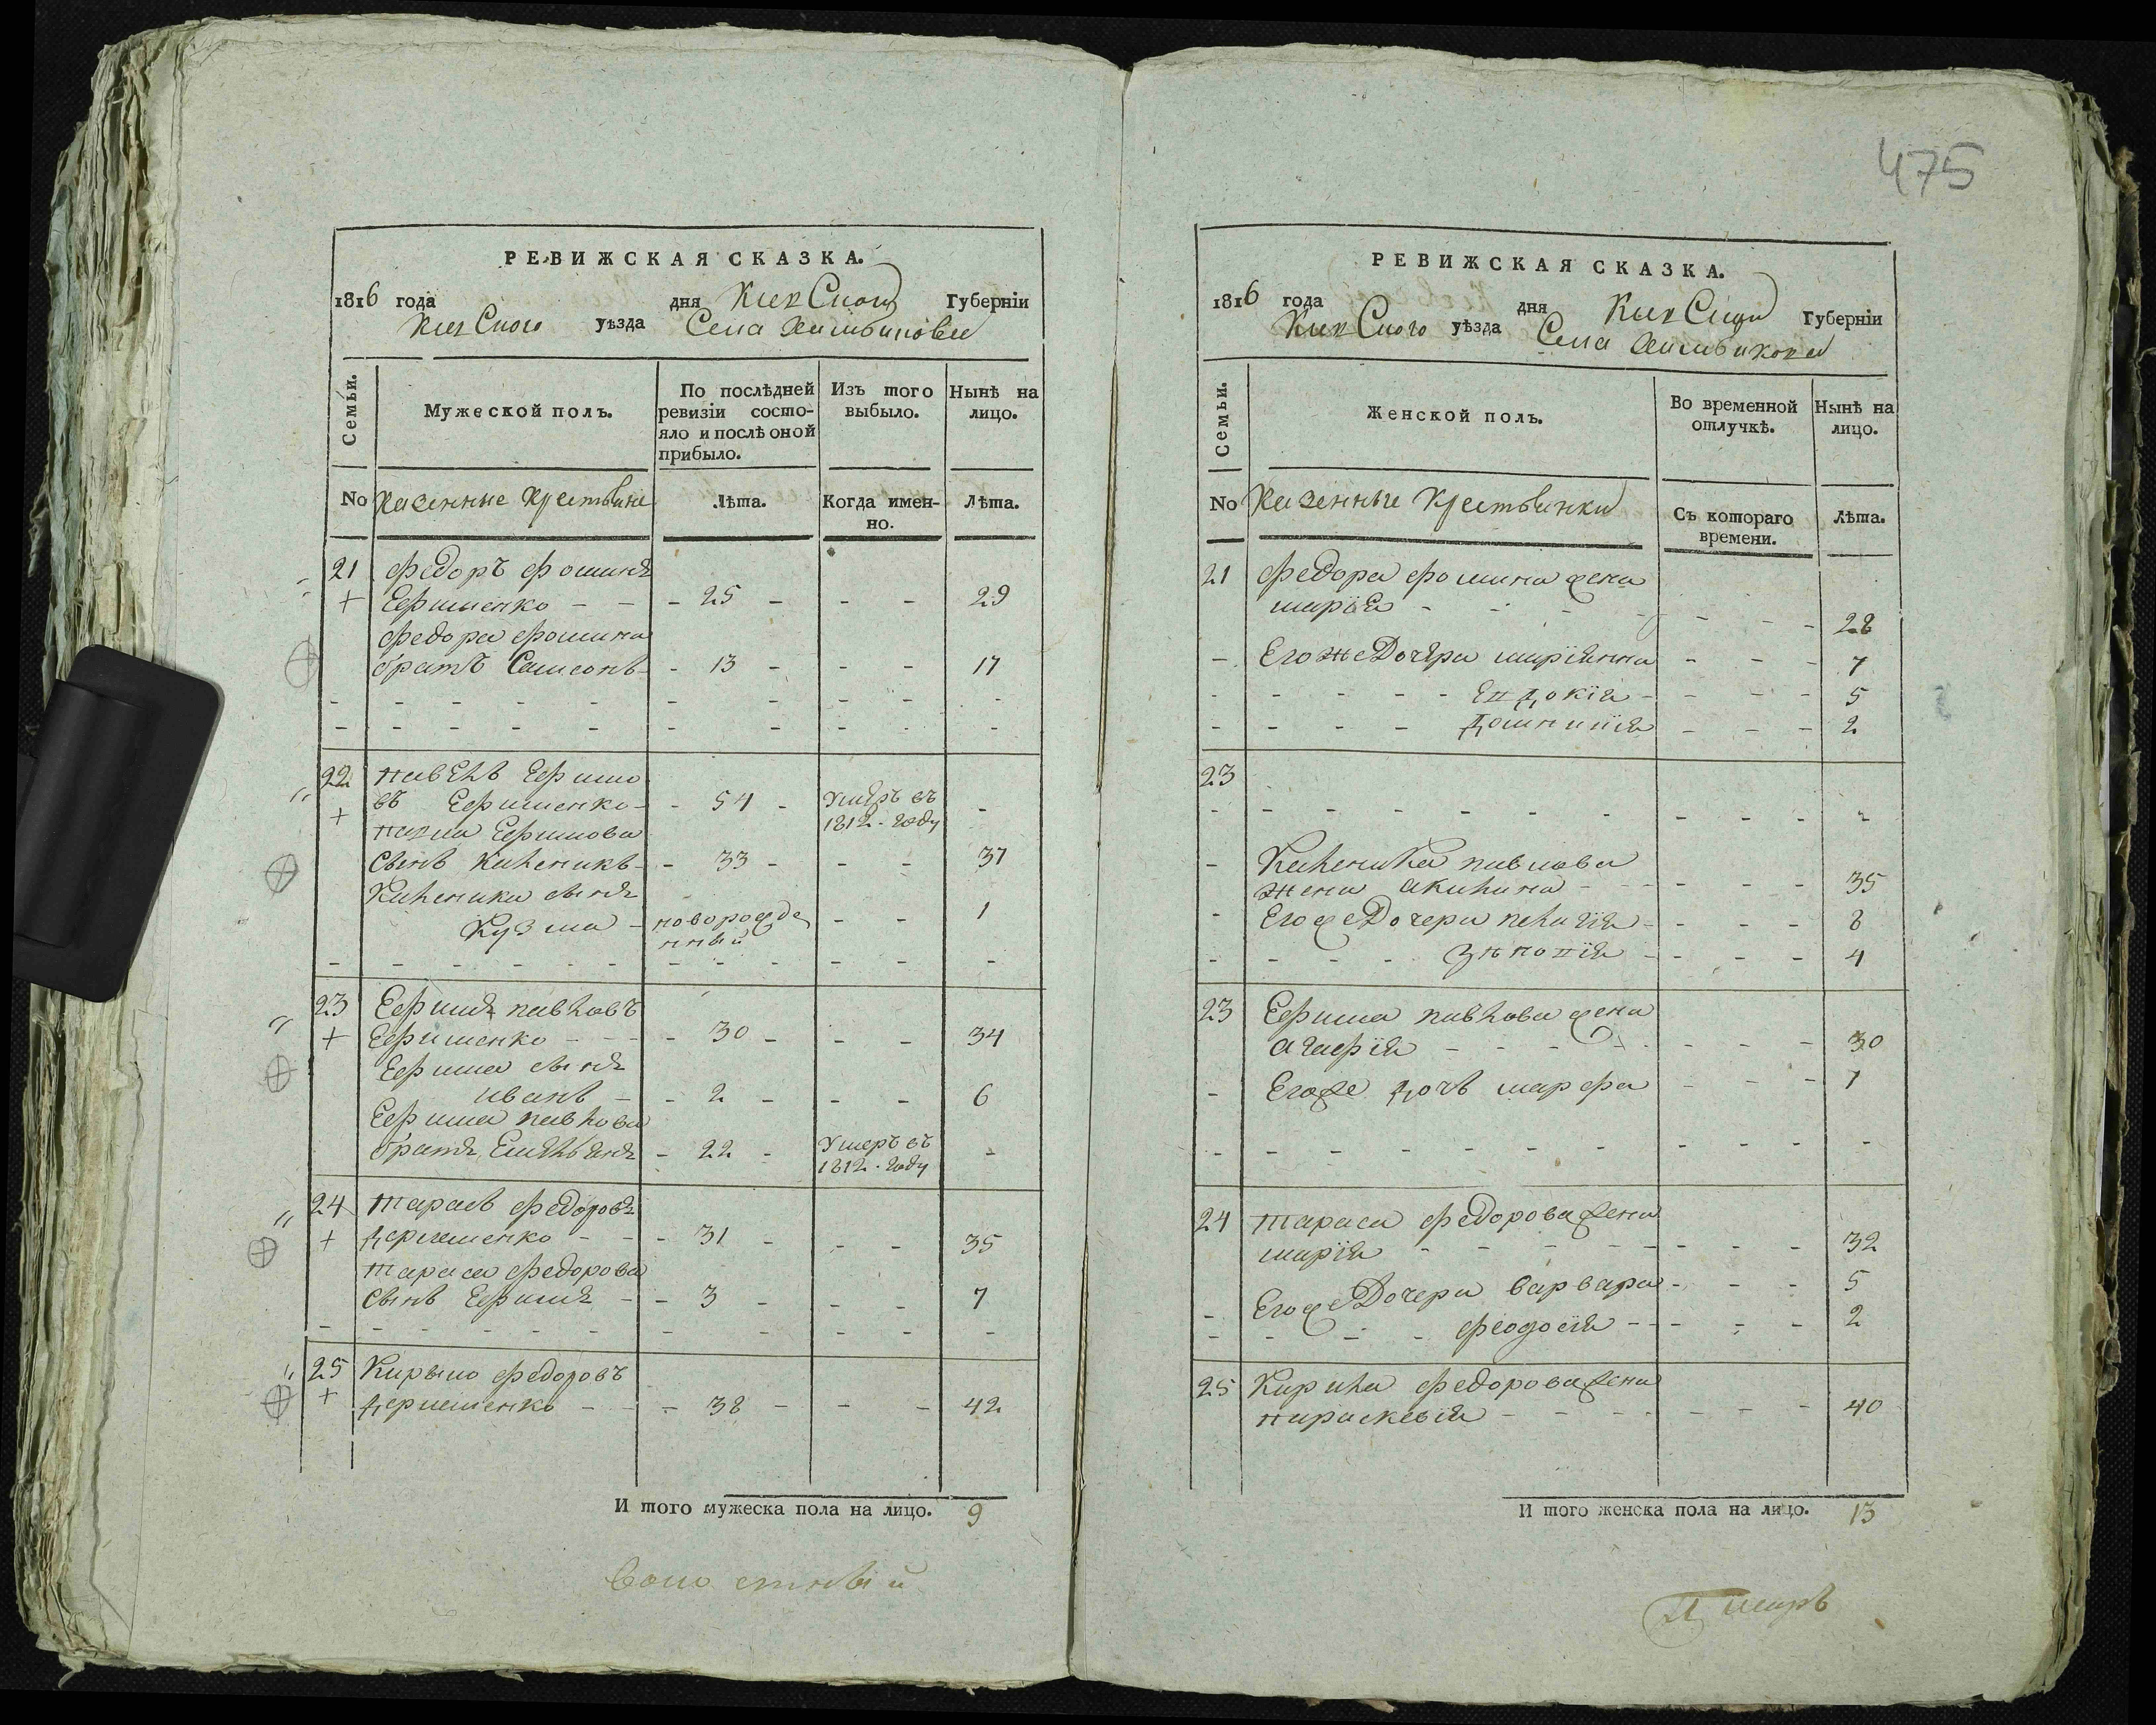 475
РЕВИЖСКАЯ СКАЗКА.
1816 года дня Киевской Губернiи
Киевского уѣзда Села
Семьи.
Мужеской полъ.
По послѣдней ревизiи состо-
яло и послѣ оной прибыло.
Изъ того выбыло.
Нынѣ на лицо.
No Казенные крестьяне
Лѣта.
Когда имен-
но.
Лѣта.
21 Федоръ Фоминъ
+ Ефименко - - - 25 - - - 29
Федора Фомина
братъ Самсонъ - - 13 - - - 17
22 Павелъ Ефимо
въ Ефименко - - 54 - Умеръ въ -
+ 1812 году
Павла Ефимова
сынъ Каленикъ - - 33 - - - 37
Каленика сынъ
Кузма - новорожде - - 1
нный
23 Ефимъ Павловъ
+ Ефименко - - - 30 - - - 34
Ефима сынъ
иванъ - - 2 - - - 6
Ефима Павлова
братъ Емельянъ - 22 - Умеръ въ -
1812 году
24 Тарасъ Федоровъ
+ - - - 31 - - - 35
Тараса Федорова
сынъ Ефимъ - - 3 - - - 7
25 Кирыло Федоровъ
+ - - - 38 - - - 42
И того мужеска пола на лицо. 9
РЕВИЖСКАЯ СКАЗКА.
1816 года дня Киевской Губернiи
Киевского уѣзда Села
Семьи.
Женской полъ.
Во временной отлучкѣ.
Нынѣ на лицо.
No Казенные крестьянки
Съ котораго времени.
Лѣта.
21 Федора Фомина жена
марiя - - - - - - - 28
- Его же дочери марiянна - - - 7
- - - - - Евдокiя - - - - 5
- - - - - Домникiя - - - 2
23
- Каленика павлова
жена акилина - - - - - 35
- Его же дочери пелагiя - - - - 8
- - - - - зѣновiя - - - - 4
23 Ефима павлова жена
агафiя - - - - - - - 30
- Его же дочь марфа - - - 1
24 Тараса Федорова жена
марiя - - - - - - - - 32
- Его же дочери варвара - - - 5
- - - - феодосiя - - - - - 2
25 Кирила Федорова жена
параскевiя - - - - - - - 40
И того женска пола на лицо. 13